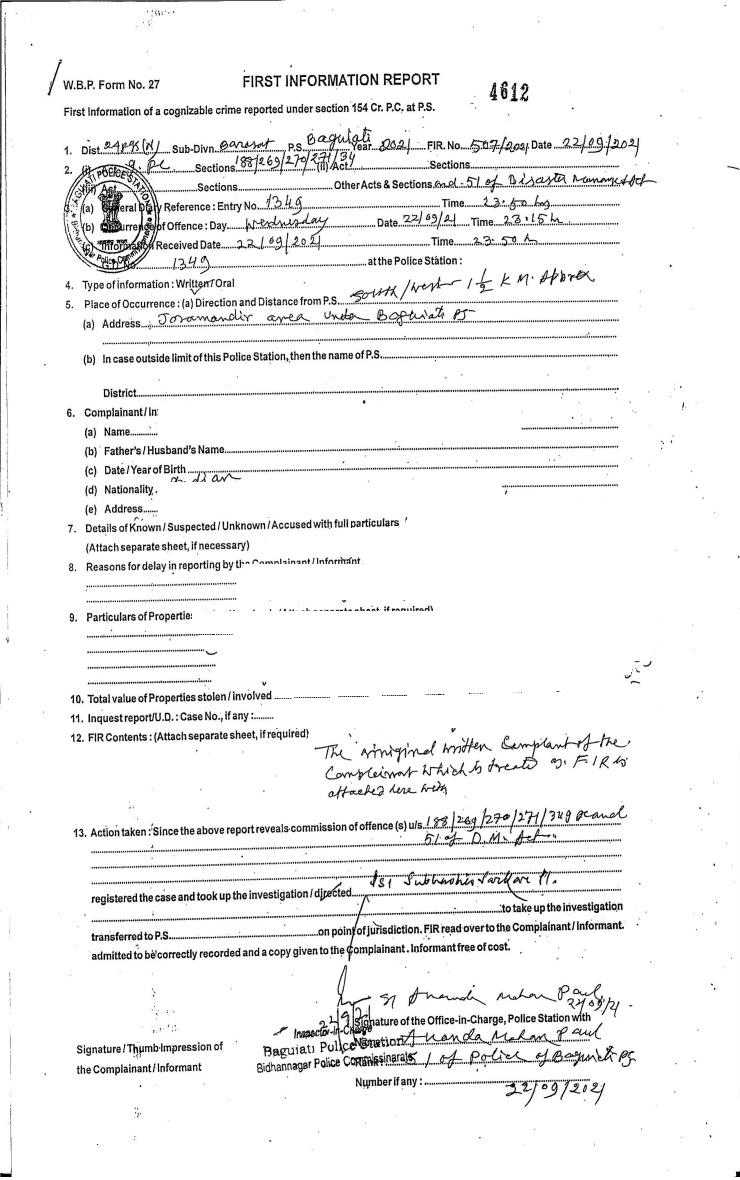 W.B.P. Form No. 27
FIRST INFORMATION REPORT
4612
First Information of a cognizable crime reported under section 154 Cr. P.C. at P.S.
1. Dist. 24 Pgs (N) Sub-Divn. Barasat P.S. Baguiati Year 2021 FIR. No. 507/2021 Date 22/09/2021
2. Sections 188/269/270/271/34 (ii) Act Sections
Act Sections Other Acts & Sections and 51 of Disaster Act
3. (a) General Diary Reference : Entry No. 1349 Time 23:50 hrs
(b) Occurrence of Offence : Day Wednesday Date 22/09/21 Time 23:15 h
(c) Information Received Date 22/09/2021 Time 23:50 h
1349 at the Police Station :
4. Type of information : Written / Oral
5. Place of Occurrence : (a) Direction and Distance from P.S. South/West 1 1/2 K.M. Approx
(a) Address Joramandir area under Baguiati PS
(b) In case outside limit of this Police Station, then the name of P.S.
District
6. Complainant / In
(a) Name
(b) Father's / Husband's Name
(c) Date / Year of Birth
(d) Nationality
(e) Address
7. Details of Known / Suspected / Unknown / Accused with full particulars
(Attach separate sheet, if necessary)
8. Reasons for delay in reporting by the Complainant / Informant
9. Particulars of Propertie
10. Total value of Properties stolen / involved
11. Inquest report/U.D. : Case No., if any :
12. FIR Contents : (Attach separate sheet, if required)
The written Complant of the
Complainat which is as FIR is
attached here with
13. Action taken : Since the above report reveals commission of offence (s) u/s. 188/269/270/271/34 and
51 of D.M. Act.
registered the case and took up the investigation / directed
to take up the investigation
transferred to P.S. on point of jurisdiction. FIR read over to the Complainant / Informant.
admitted to be correctly recorded and a copy given to the Complainant. Informant free of cost.
SI Mohan Paul
22/09/21
Signature of the Office-in-Charge, Police Station with
Inspector-in-Charge
Baguiati Police Station
Ananda Mohan Paul
Bidhannagar Police Commissinarate
SI of Police of Baguiati PS
Signature / Thumb Impression of
the Complainant / Informant
Number if any :
22/09/2021